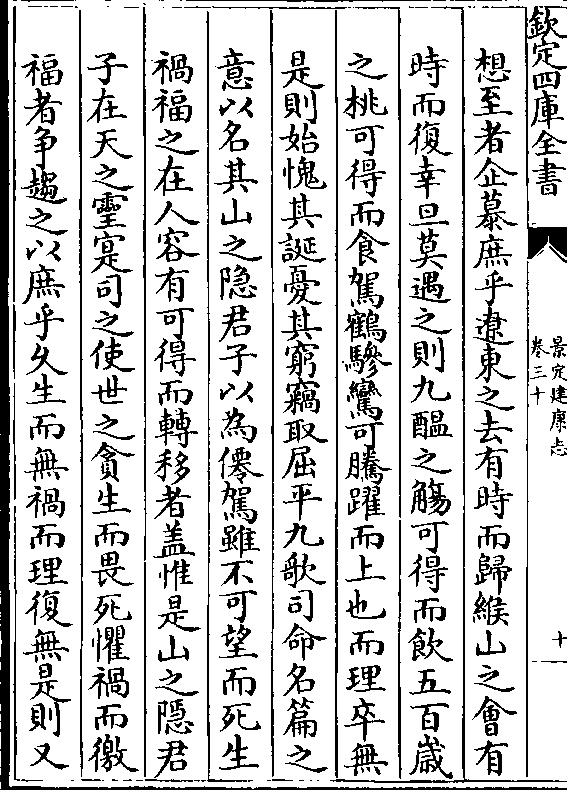 欽定四庫全書
景定建康志
卷三十
十
想至者企慕庶乎遼東之去有時而歸緱山之會有
時而復幸旦莫遇之則九醖之觴可得而飲五百歳
之桃可得而食駕鶴驂鸞可騰躍而上也而理卒無
是則始愧其誕憂其窮竊取屈平九歌司命名篇之
意以名其山之隐君子以為僊駕雖不可望而死生
禍福之在人容有可得而轉移者盖惟是山之隱君
子在天之靈寔司之使世之貪生而畏死懼禍而徼
福者争趨之以庶乎久生而無禍而理復無是則又